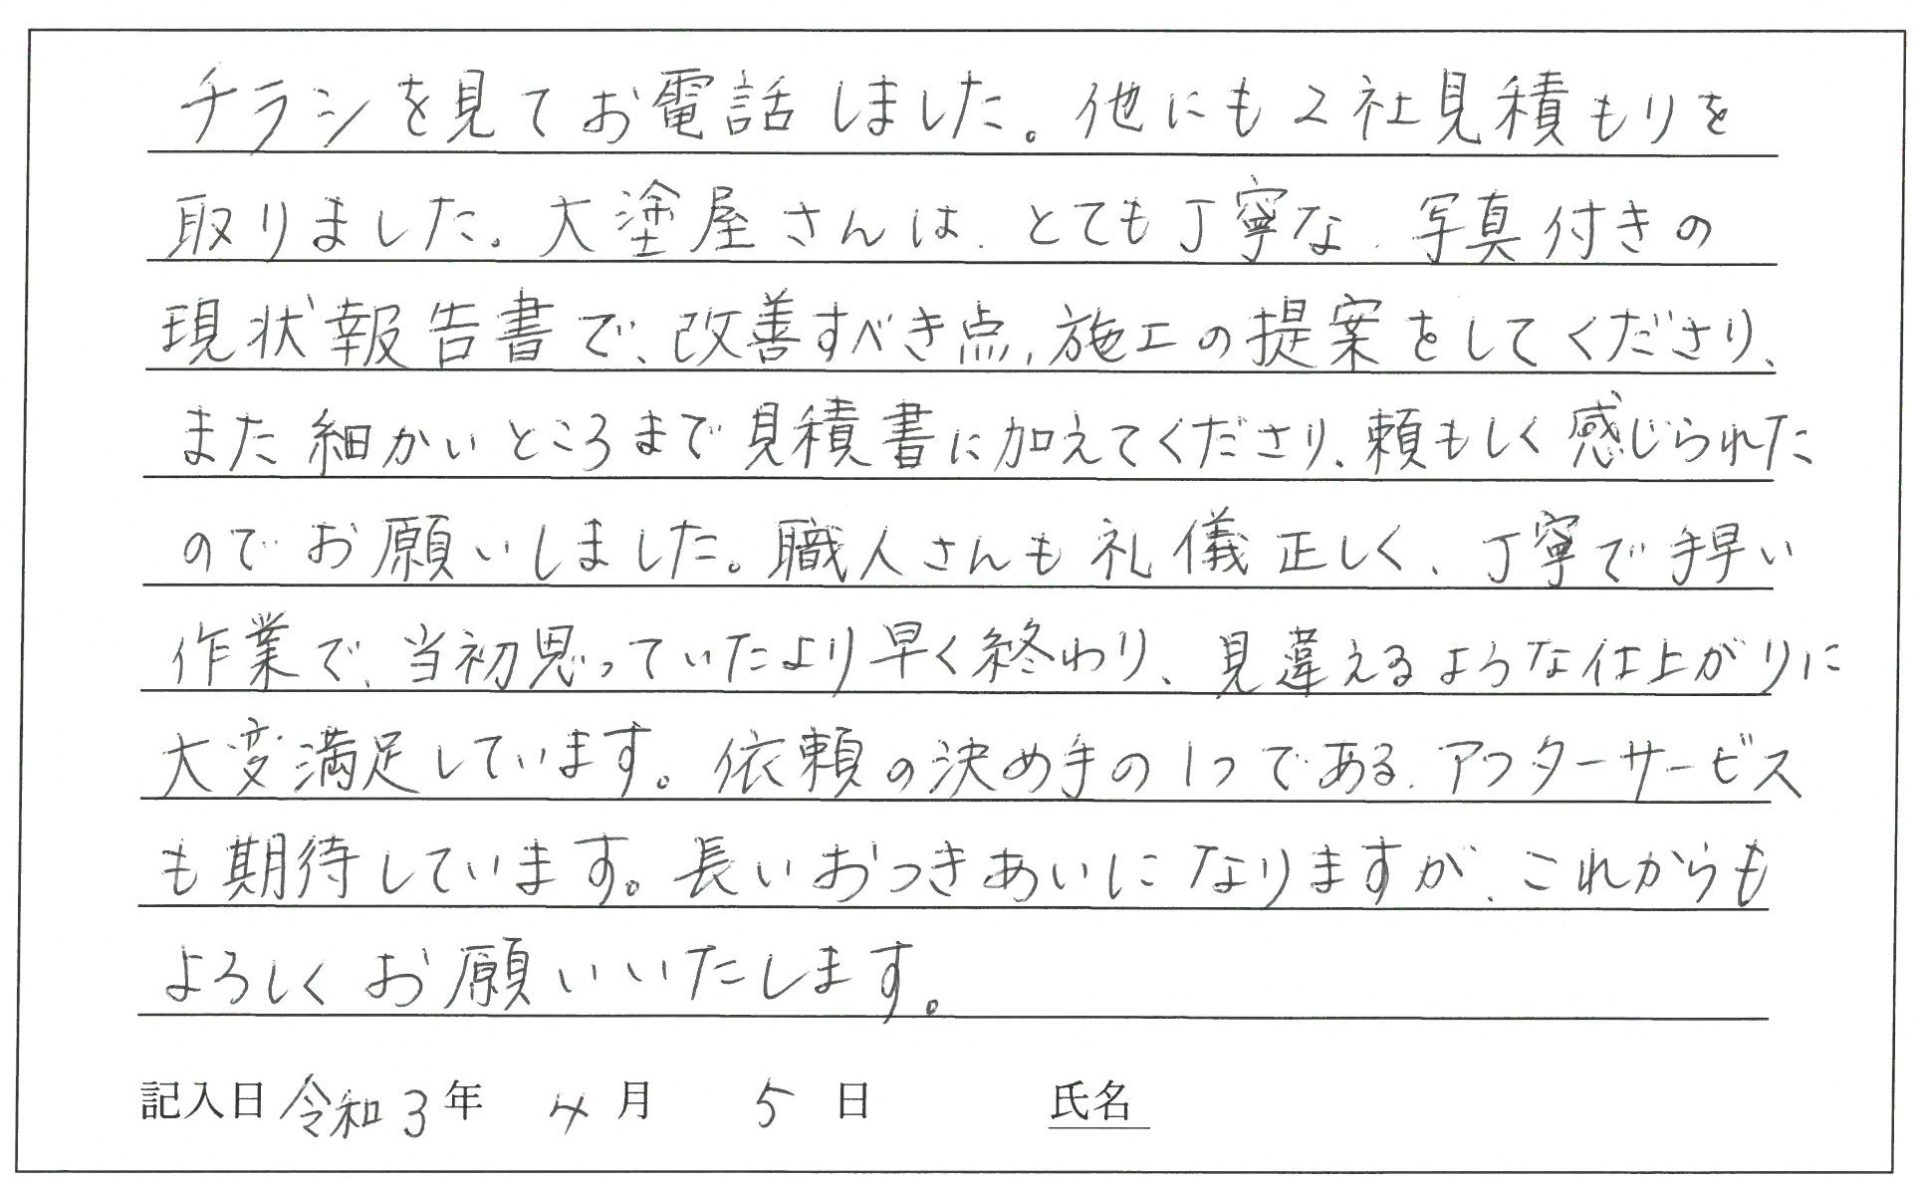 チラシを見てお電話しました。他にも2社見積もりを
取りました。大塗屋さんは、とても丁寧な、写真付きの
現状報告書で、改善すべき点、施工の提案をしてくださり、
また細かいところまで見積書に加えてくださり、頼もしく感じられた
のでお願いしました。職人さんも礼儀正しく、丁寧で手早い
作業で、当初思っていたより早く終わり、見違えるような仕上がりに
大変満足しています。依頼の決め手の1つである、アフターサービス
も期待しています。長いおつきあいになりますが、これからも
よろしくお願いいたします。
記入日 令和3年 4月 5日 氏名